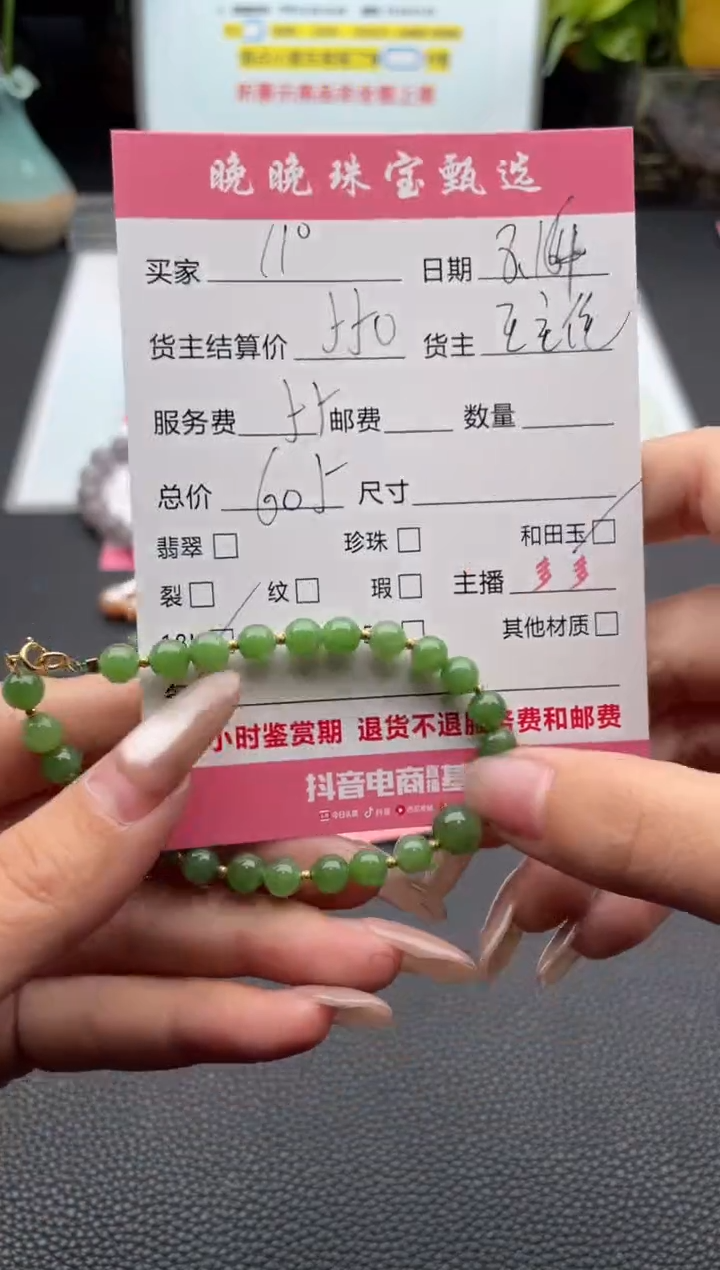 晚晚珠宝甄选
买家 11° 日期
货主结算价 550 货主
服务费 55 邮费 数量
总价 605 尺寸
翡翠 珍珠 和田玉
裂 纹 瑕 主播 多多
其他材质
小时鉴赏期 退货不退服务费和邮费
抖音电商直播基
今日头条 抖音 西瓜视频